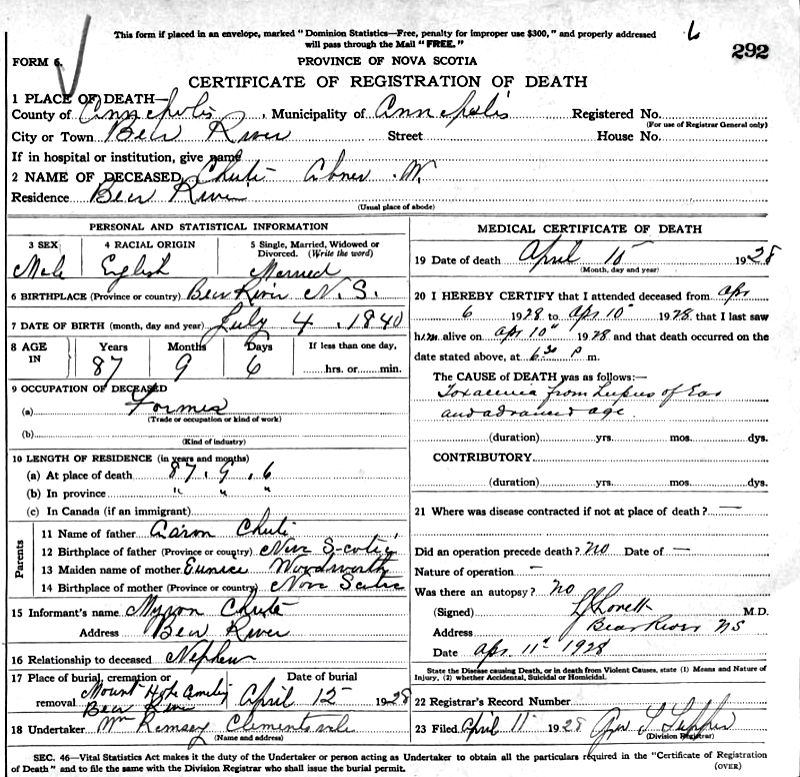 This form if placed in an envelope, marked "Dominion Statistics—Free, penalty for improper use $300," and properly addressed
will pass through the Mail "FREE."
6
292
FORM 6.
PROVINCE OF NOVA SCOTIA
CERTIFICATE OF REGISTRATION OF DEATH
1 PLACE OF DEATH—
County of Annapolis, Municipality of Annapolis Registered No.
(For use of Registrar General only)
City or Town Bear River Street House No.
If in hospital or institution, give name
2 NAME OF DECEASED Chute Abner W.
Residence Bear River
(Usual place of abode)
PERSONAL AND STATISTICAL INFORMATION
3 SEX 4 RACIAL ORIGIN 5 Single, Married, Widowed or Divorced. (Write the word)
Male English Married
6 BIRTHPLACE (Province or country) Bear River N. S.
7 DATE OF BIRTH (month, day and year) July 4, 1840
8 AGE IN Years Months Days If less than one day,
87 9 6 hrs. or min.
9 OCCUPATION OF DECEASED
(a) Farmer
(Trade or occupation or kind of work)
(b)
(Kind of industry)
10 LENGTH OF RESIDENCE (in years and months)
(a) At place of death 87. 9. 6
(b) In province " " "
(c) In Canada (if an immigrant)
Parents
11 Name of father Aaron Chute
12 Birthplace of father (Province or country) Nova Scotia
13 Maiden name of mother Eunice Woodworth
14 Birthplace of mother (Province or country) Nova Scotia
15 Informant's name Myron Chute
Address Bear River
16 Relationship to deceased Nephew
17 Place of burial, cremation or removal Date of burial
Mount Hope
Bear River April 12 1928
18 Undertaker Wm Ramsey Clementsvale
(Name and address)
MEDICAL CERTIFICATE OF DEATH
19 Date of death April 10 1928
(Month, day and year)
20 I HEREBY CERTIFY that I attended deceased from apr
6 1928 to apr 10" 1928 that I last saw
him alive on apr 10" 1928 and that death occurred on the
date stated above, at 6 30 P m.
The CAUSE of DEATH was as follows:—
Toxaemia from Lupus of Ear
and advanced age.
(duration) yrs. mos. dys.
CONTRIBUTORY
(duration) yrs. mos. dys.
21 Where was disease contracted if not at place of death? —
Did an operation precede death? no Date of —
Nature of operation —
Was there an autopsy? no
(Signed) Lovett M.D.
Address Bear River NS
Date apr. 11th 1928
State the Disease causing Death, or in death from Violent Causes, state (1) Means and Nature of
Injury, (2) whether Accidental, Suicidal or Homicidal.
22 Registrar's Record Number
23 Filed April 11 1928
(Division Registrar)
SEC. 46—Vital Statistics Act makes it the duty of the Undertaker or person acting as Undertaker to obtain all the particulars required in the "Certificate of Registration
of Death" and to file the same with the Division Registrar who shall issue the burial permit.
(OVER)